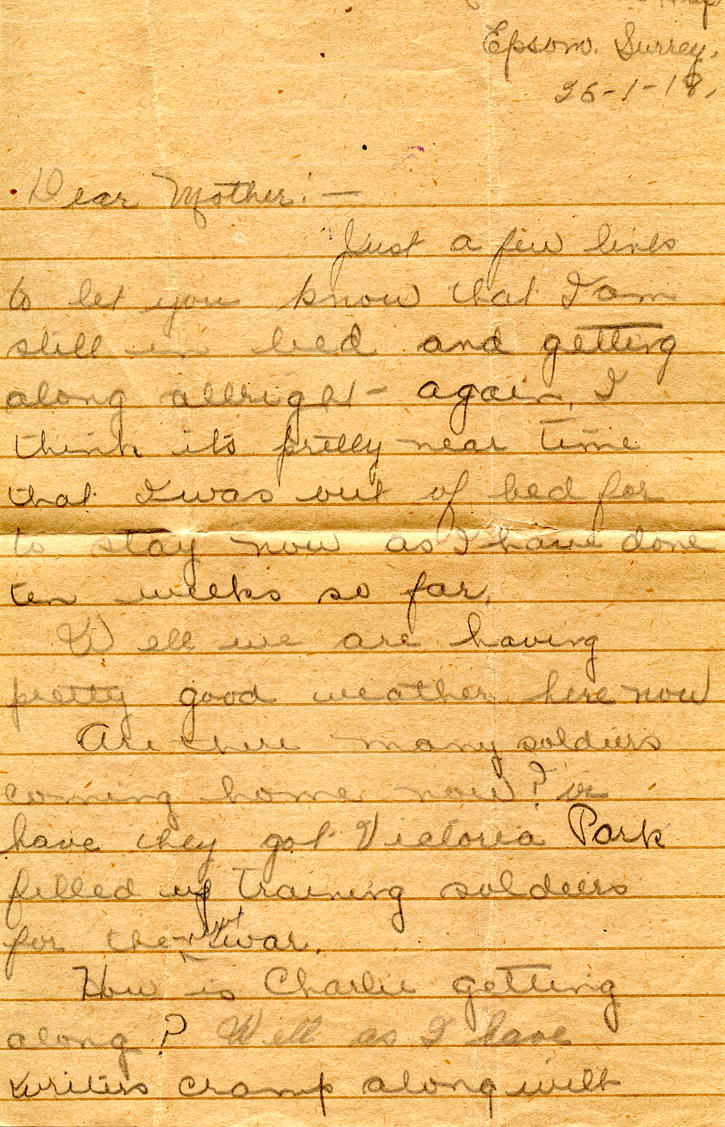 Epsom. Surrey.
26-1-18.
Dear Mother:—
Just a few lines
to let you know that I am
still in bed and getting
along allright again, I
think it's pretty near time
that I was out of bed for
to stay now as I have done
ten weeks so far.
Well we are having
pretty good weather here now
Are there many soldiers
coming home now? or
have they got Victoria Park
filled up training soldiers
for the next war.
How is Charlie getting
along? Well as I have
writers cramp along with